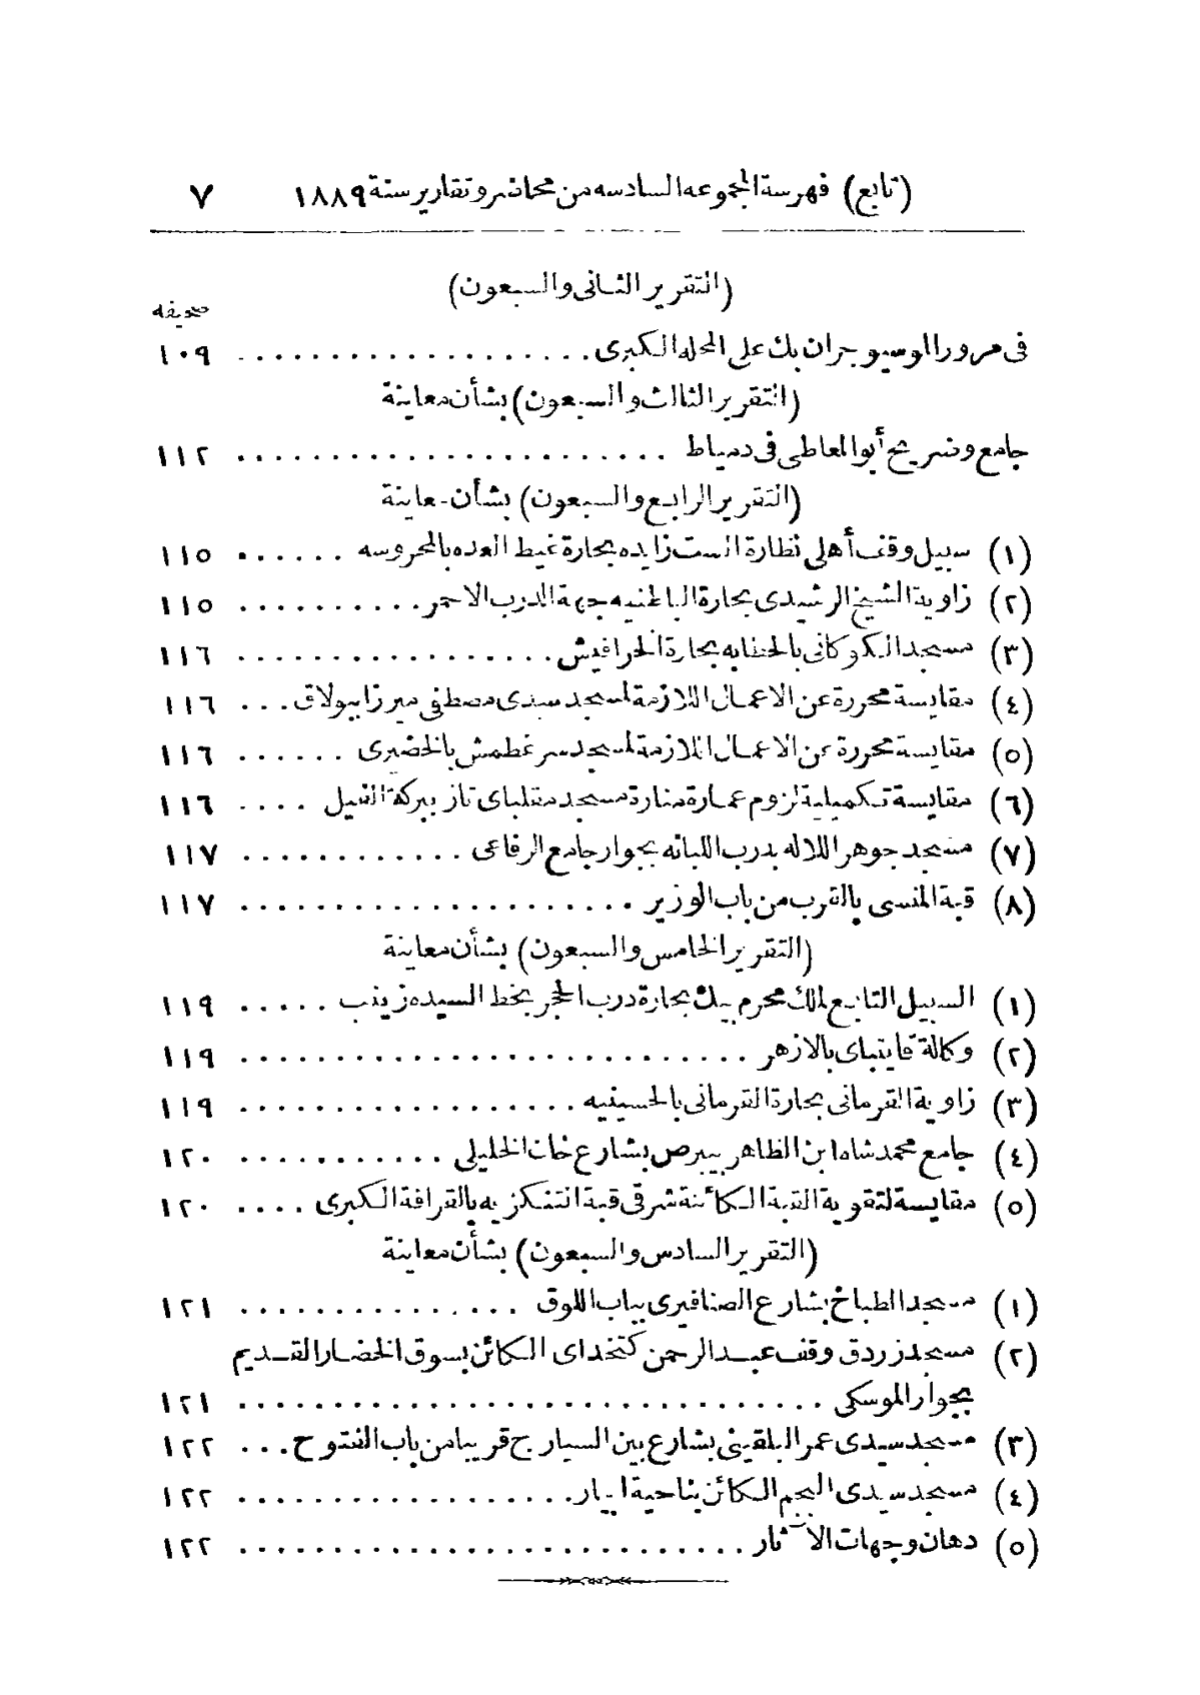 (تابع) فهرسة المجموعه السادسه من محاضر وتقارير سنة ١٨٨٩ ٧
(التقرير الثانى والسبعون)
صحيفه
فى مرور الموسيو جران بك على المحله الكبرى ................... ١٠٩
(التقرير الثالث والسبعون) بشأن معاينة
جامع وضريح أبو المعاطى فى دمياط ....................... ١١٢
(التقرير الرابع والسبعون) بشأن معاينة
(١) سبيل وقف أهلى نظارة الست زايده بحارة غيط العده بالمحروسه ...... ١١٥
(٢) زاوية الشيخ الرشيدى بحارة الباطنيه جهة الدرب الاحمر .......... ١١٥
(٣) مسجد الكوكانى بالحطابه بحارة الخرافيش ................. ١١٦
(٤) مقايسة محررة عن الاعمال اللازمة لمسجد سيدى مصطفى ميرزا ببولاق ... ١١٦
(٥) مقايسة محررة عن الاعمال اللازمة لمسجد سرغطمش بالخضيرى ...... ١١٦
(٦) مقايسة تكميلية لزوم عمارة منارة مسجد مقلباى تاز ببركة الفيل .... ١١٦
(٧) مسجد جوهر اللاله بدرب اللبانه بجوار جامع الرفاعى ............ ١١٧
(٨) قبة المنسى بالقرب من باب الوزير ..................... ١١٧
(التقرير الخامس والسبعون) بشأن معاينة
(١) السبيل التابع لملك محرم بيك بحارة درب الحجر بخط السيده زينب ..... ١١٩
(٢) وكالة قايتباى بالازهر ........................... ١١٩
(٣) زاوية القرمانى بحارة القرمانى بالحسينيه .................. ١١٩
(٤) جامع محمد شاه ابن الظاهر بيبرص بشارع خان الخليلى ........... ١٢٠
(٥) مقايسة لتقوية القبة الكائنة شرقى قبة التنكزيه بالقرافة الكبرى .... ١٢٠
(التقرير السادس والسبعون) بشأن معاينة
(١) مسجد الطباخ بشارع الصنافيرى بباب اللوق ............... ١٢١
(٢) مسجد زردق وقف عبد الرحمن كتخداى الكائن بسوق الخضار القديم
بجوار الموسكى ............................... ١٢١
(٣) مسجد سيدى عمر البلقينى بشارع بين السيارج قريبا من باب الفتوح ... ١٢٢
(٤) مسجد سيدى البجم الكائن بناحية ابيار .................. ١٢٢
(٥) دهان وجهات الآثار ........................... ١٢٢